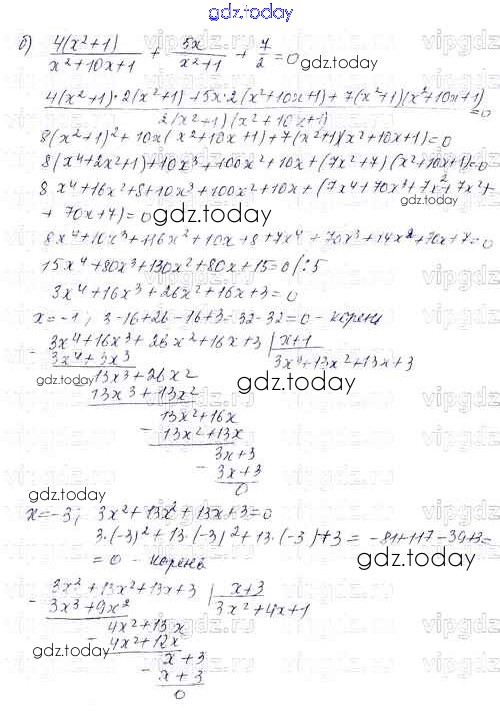 gdz.today
б) 4(x²+1)/(x²+10x+1) + 5x/(x²+1) + 7/2 = 0 gdz.today
(4(x²+1)·2(x²+1)+5x·2(x²+10x+1)+7(x²+1)(x²+10x+1))/(2(x²+1)(x²+10x+1)) =0
8(x²+1)²+10x(x²+10x+1)+7(x²+1)(x²+10x+1)=0
8(x⁴+2x²+1)+10x³+100x²+10x+(7x²+7)(x²+10x+1)=0
8x⁴+16x²+8+10x³+100x²+10x+(7x⁴+70x³+7x²+7x²+
+70x+7)=0 gdz.today
8x⁴+10x³+116x²+10x+8+7x⁴+70x³+14x²+70x+7=0
15x⁴+80x³+130x²+80x+15=0/:5
3x⁴+16x³+26x²+16x+3=0
x=-1; 3-16+26-16+3=32-32=0 - корень
- 3x⁴+16x³+26x²+16x+3 | x+1
3x⁴+3x³ 3x⁴+13x²+13x+3
gdz.today 13x³+26x²
13x³+13x² gdz.today
13x²+16x
- 13x²+13x
3x+3
- 3x+3
0
gdz.today
x=-3; 3x²+13x²+13x+3=0
3·(-3)²+13·(-3)²+13·(-3)+3= -81+117-39+3=
=0 - корень gdz.today
- 3x²+13x²+13x+3 | x+3
3x³+9x² 3x²+4x+1
4x²+13x
- 4x²+12x
gdz.today x+3
- x+3
0
gdz.today